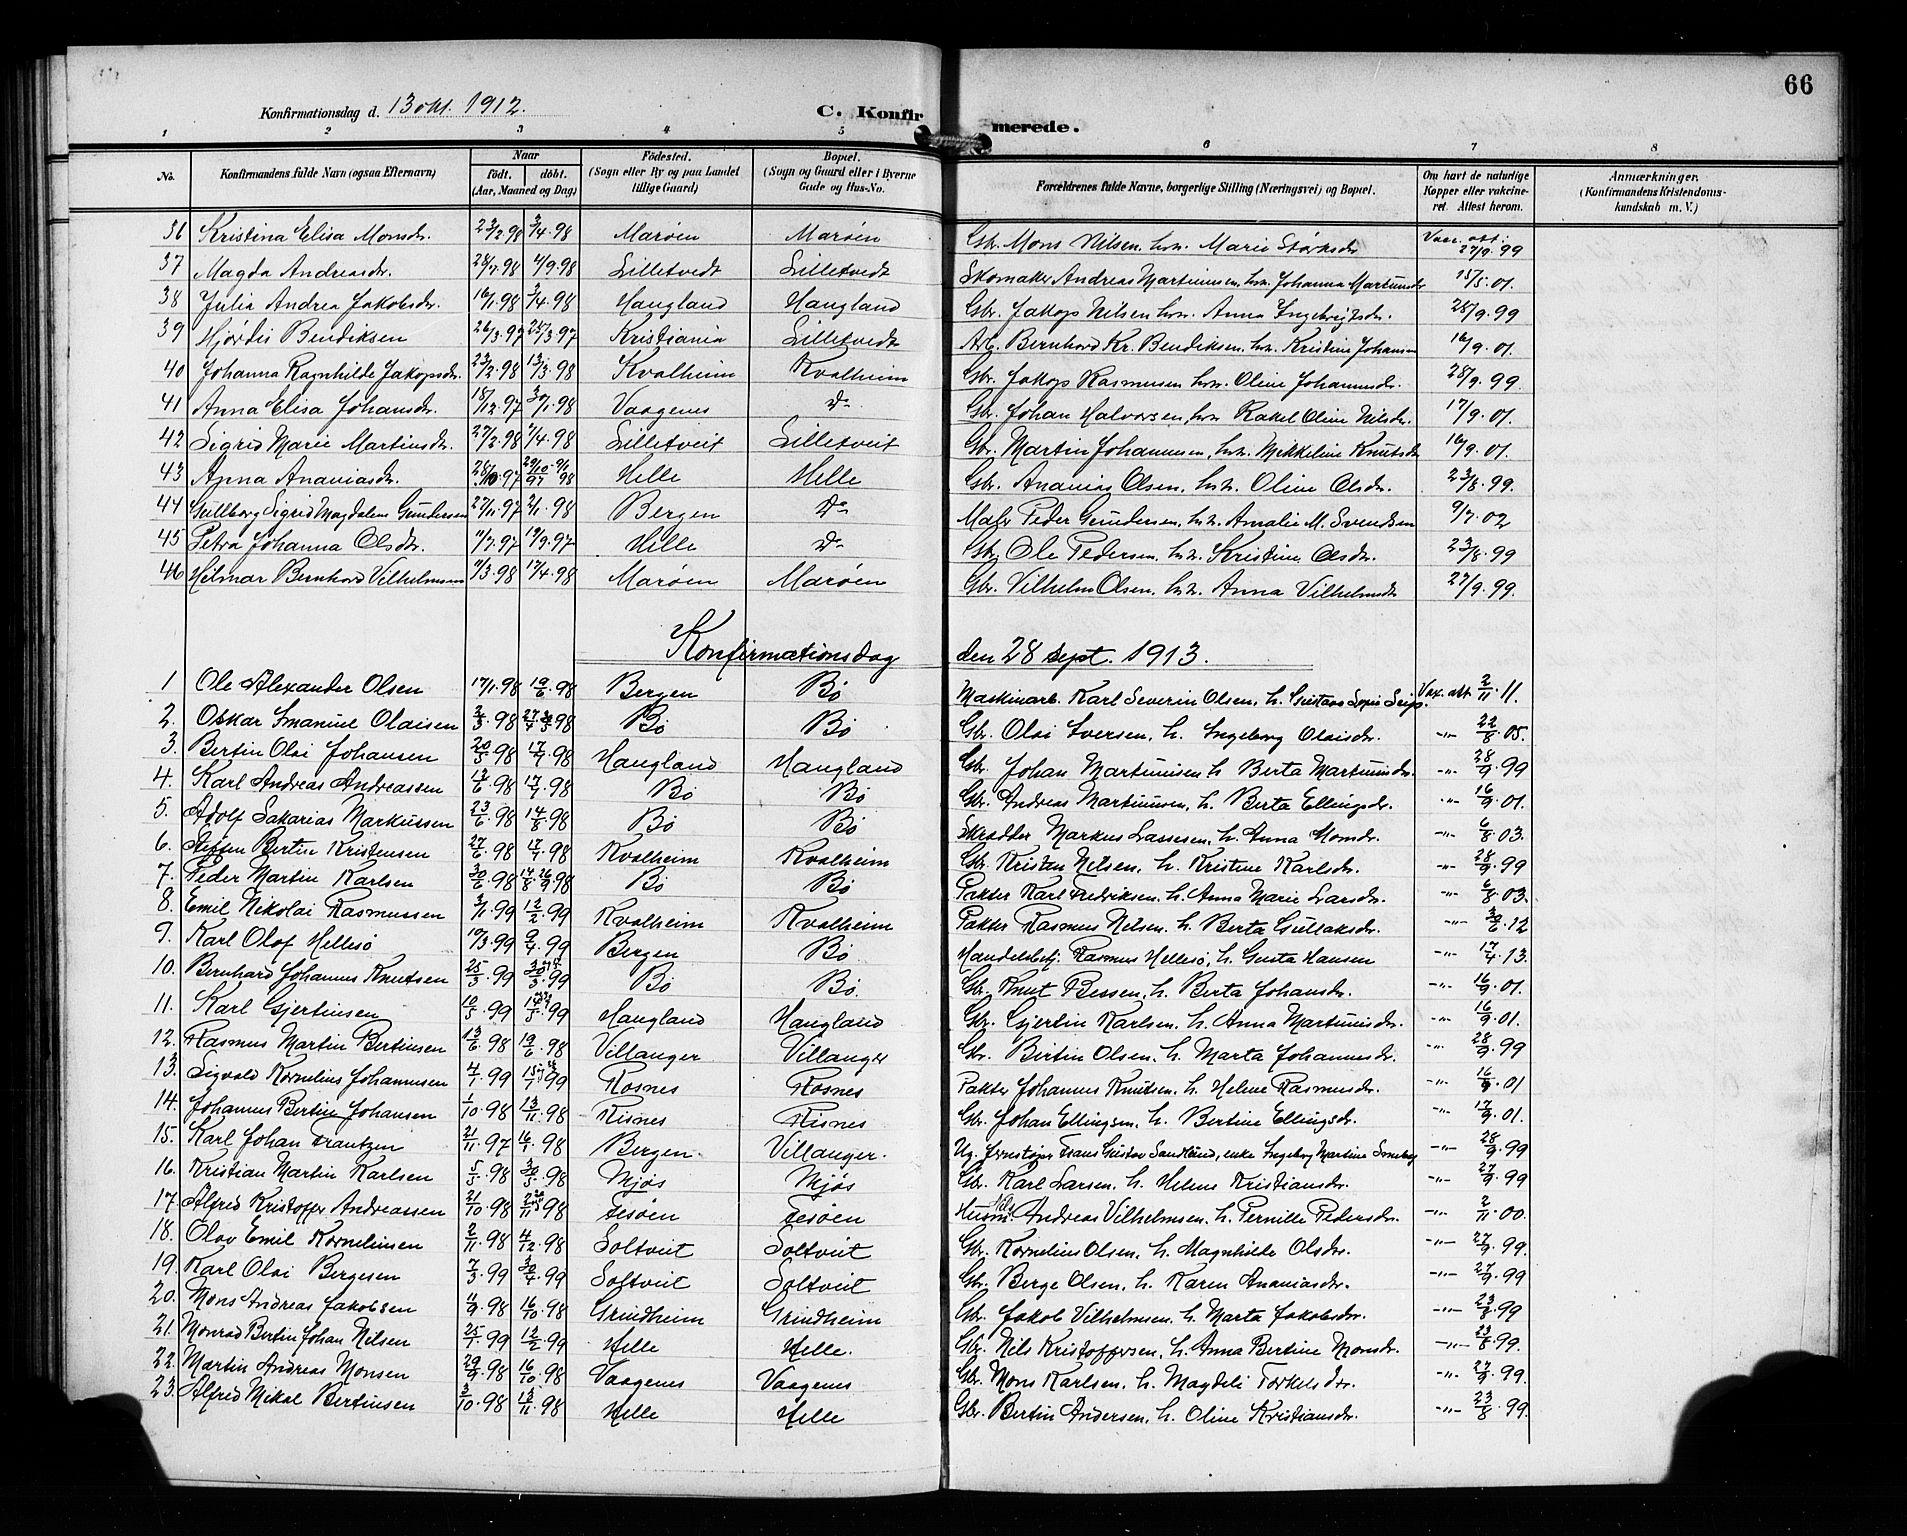 66
Konfirmationsdag d. 13 okt. 1912. C. Konfirmerede.
1 2 3 4 5 6 7 8
No. Konfirmandens fulde Navn (ogsaa Efternavn) Naar født. døbt. (Aar, Maaned og Dag) Fødested. (Sogn eller By og paa Landet tillige Gaard) Bopæl. (Sogn og Gaard eller i Byerne Gade og Hus-No. Forældrenes fulde Navne, borgerlige Stilling (Næringsvei) og Bopæl. Om havt de naturlige Kopper eller vakcineret. Attest herom. Anmærkninger. (Konfirmandens Kristendomskundskab m. V.)
36 Kristina Elisa Monsdr. 23/2 98 3/4 98 Marøen Marøen Gbr. Mons Nilsen, hu. Marie Størksdr. Vacc. att. 27/9 99
37 Magda Andreasdr. 28/7 98 4/9 98 Lilletvedt Lilletvedt Skomaker Andreas Martinusen, hu. Johanna Martinusdr 15/5 01.
38 Julia Andrea Jakobsdr. 16/1 98 3/4 98 Haugland Haugland Gbr. Jakop Nilsen hu. Anna Ingebrigtsdr. 28/9 99
39 Hjørdis Bendiksen 26/3 97 28/3 97 Kristiania Lilletvedt Arb. Bernhard Kr. Bendiksen, hu. Kristine Johansen 16/9 01.
40 Johanna Ragnhilde Jakopsdr. 23/2 98 13/3 98 Kvalheim Kvalheim Gbr. Jakop Rasmusen hu. Oline Johannesdr. 28/9 99
41 Anna Elisa Johansdr. 18/12 97 30/1 98 Vaagenes Do Gbr. Johan Halvorsen, hu. Rakel Oline Nilsdr. 17/9 01.
42 Sigrid Marie Martinsdr. 27/2 98 11/4 98 Lilletveit Lilletveit Gbr. Martin Johannesen, hu. Mikkeline Knutsdr 16/9 01.
43 Anna Ananiasdr. 28/10 97 Helle Helle Gbr. Ananias Olsen, hu. Oline Olsdr. 23/8 99.
44 Gullborg Sigrid Magdalene Gundersen 27/11 97 2/1 98 Bergen Do Maler Peder Gundersen, hu. Amalie M. Svendsen 9/7 02
45 Petra Johanna Olsdr. 11/7 97 19/9 97 Helle Do Gbr. Ole Pedersen, hu. Kristine Olsdr. 23/8 99
46 Hilmar Bernhard Vilhelmsen 11/3 98 17/4 98 Marøen Marøen Gbr. Vilhelm Olsen, hu. Anna Vilhelmsdr 27/9 99.
Konfirmationsdag den 28 sept. 1913.
1 Ole Alexander Olsen 17/1 98 19/6 98 Bergen Bø Maskinarb. Karl Severin Olsen, h. Gustava Vax. att 2/11 11.
2. Oskar Emanuel Olaisen 3/3 98 Bø Bø Gbr. Olai Iversen, h. Ingeborg Olaisdr. -"- 22/8 05.
3. Bertin Olai Johansen 20/5 98 17/7 98 Haugland Haugland Gbr. Johan Martinusen h. Berta Martinusdr. -"- 28/9 99
4. Karl Andreas Andreassen 12/6 98 17/7 98 Bø Bø Gbr. Andreas Martinusen, h. Berta Ellingsdr. -"- 16/9 01.
5. Adolf Sakarias Markussen 23/6 98 14/8 98 Bø Bø Skrædder Markus Lassesen, h. Anna Monsdr. -"- 6/8 03.
6. Steffen Bertin Kristensen 27/6 98 17/7 98 Kvalheim Kvalheim Gbr. Kristen Nilsen, h. Kristine Karlsdr. -"- 28/9 99
7. Peder Martin Karlsen 30/6 98 Bø Bø Pakter Karl Fredriksen, h. Anna Marie Larsdr. -"- 6/8 03.
8. Emil Nikolai Rasmussen 3/1 99 12/2 99 Kvalheim Kvalheim Pakter Rasmus Nilsen, h. Berta Gullaksdr. -"- 30/6 12
9. Karl Olof Hellesø 19/3 99 9/4 99 Bergen Bø Handelsbetj. Rasmus Hellesø, h. Gusta Hansen -"- 17/4 13.
10. Bernhard Johannes Knutsen 25/3 99 Bø Bø. Gbr. Knut Bessen, h. Berta Johansdr. -"- 16/9 01.
11. Karl Gjertinsen 10/5 99 Haugland Haugland Gbr. Gjertin Karlsen, h. Anna Martinusdr. -"- 16/9 01.
12. Rasmus Martin Bertinsen 13/6 98 19/6 98 Villanger Villanger Gbr. Bertin Olsen, h. Marta Johannesdr. -"- 28/9 99
13. Sigvald Kornelius Johannesen 4/1 99 Rosnes Rosnes Pakter Johannes Knutsen, h. Helene Rasmusdr. -"- 16/9 01
14. Johannes Bertin Johansen 1/10 98 13/11 98 Risnes Risnes Gbr. Johan Ellingsen, h. Bertine Ellingsdr. -"- 17/9 01.
15. Karl Johan Frantzen 21/11 97 16/1 98 Bergen. Villanger. Ug. Frans Gustav Sandlund, enke Ingeborg Martine -"- 28/9 99
16. Kristian Martin Karlsen 5/5 98 30/5 98 Mjøs Mjøs Gbr. Karl Larsen, h. Helene Kristiansdr. -"- 27/9 99
17. Alfred Kristoffer Andreassen 21/10 98 Fesøen Fesøen Andreas Vilhelmsen, h. Pernille Pedersdr. -"- 2/11 00.
18. Olav Emil Korneliusen 2/11 98 4/12 98 Soltveit Soltveit Gbr. Kornelius Olsen, h. Magnhilde Olsdr. -"- 27/9 99.
19. Karl Olai Bergesen 7/3 99 30/4 99 Soltveit Soltveit Gbr. Berge Olsen, h. Karen Ananiasdr. -"- 27/9 99
20. Mons Andreas Jakobsen 11/9 98 16/10 98 Grindheim Grindheim Gbr. Jakob Vilhelmsen, h. Marta Jakobsdr. -"- 23/8 99
21. Monrad Bertin Johan Nilsen 25/1 99 12/2 99 Helle Helle. Gbr. Nils Kristoffersen, h. Anna Bertine Monsdr. -"- 23/8 99.
22. Martin Andreas Monsen 29/9 98 16/10 98 Vaagenes Vaagenes Gbr. Mons Karlsen, h. Magdeli Torkelsdr. -"- 27/9 99.
23. Alfred Mikal Bertinsen 3/10 98 13/11 98 Helle Helle Gbr. Bertin Andersen, h. Oline Kristiansdr. -"- 23/8 99.